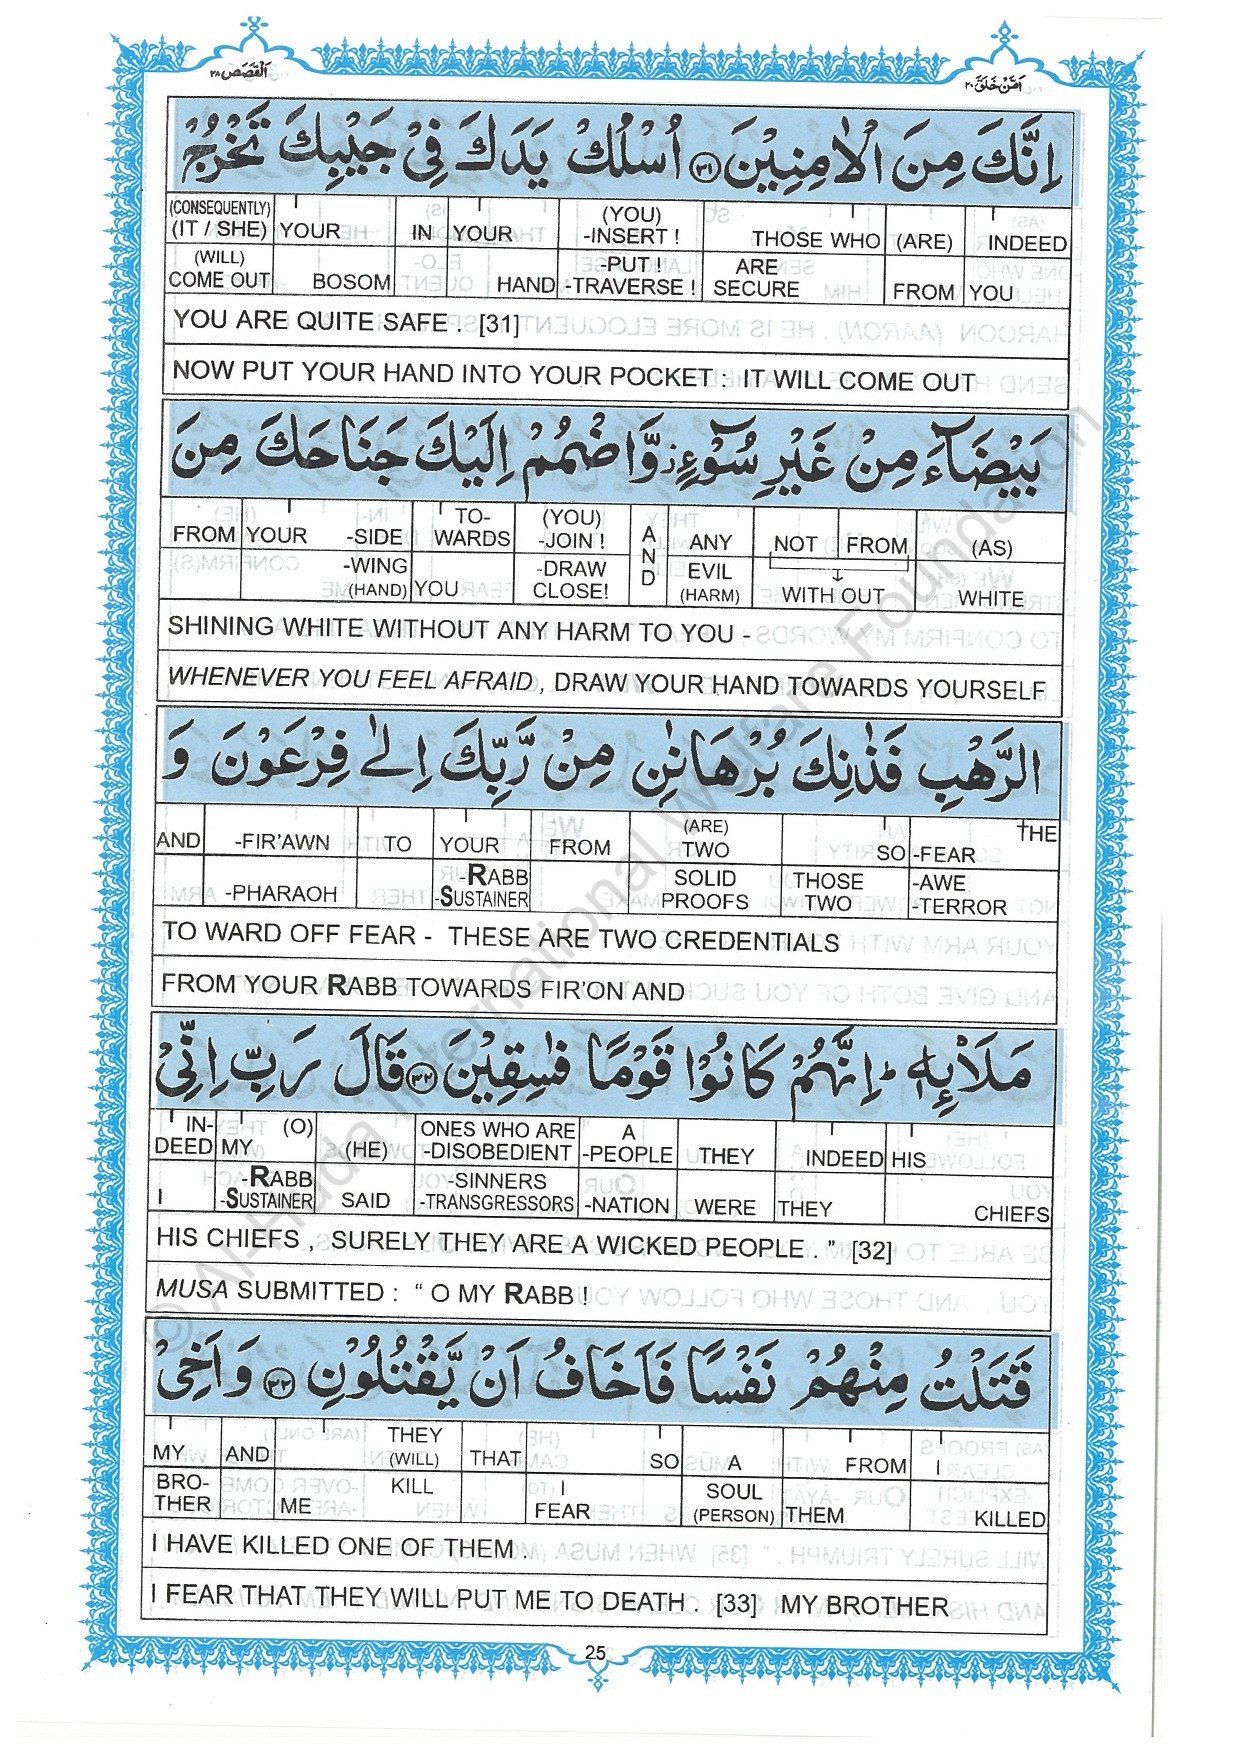 القصص ٢٨
امن خلق ٢٠
اِنَّكَ مِنَ الْاٰمِنِيْنَ ﴿٣١﴾ اُسْلُكْ يَدَكَ فِيْ جَيْبِكَ تَخْرُجْ
(CONSEQUENTLY) (IT / SHE) YOUR IN YOUR (YOU) -INSERT ! THOSE WHO (ARE) INDEED
(WILL) COME OUT BOSOM HAND -PUT ! -TRAVERSE ! ARE SECURE FROM YOU
YOU ARE QUITE SAFE . [31]
NOW PUT YOUR HAND INTO YOUR POCKET : IT WILL COME OUT
بَيْضَآءَ مِنْ غَيْرِ سُوْٓءٍ ز وَّاضْمُمْ اِلَيْكَ جَنَاحَكَ مِنَ
FROM YOUR -SIDE TO-WARDS (YOU) -JOIN ! AND ANY NOT FROM (AS)
-WING (HAND) YOU -DRAW CLOSE! EVIL (HARM) WITH OUT WHITE
SHINING WHITE WITHOUT ANY HARM TO YOU -
WHENEVER YOU FEEL AFRAID , DRAW YOUR HAND TOWARDS YOURSELF
الرَّهْبِ فَذٰنِكَ بُرْهَانٰنِ مِنْ رَّبِّكَ اِلٰى فِرْعَوْنَ وَ
AND -FIR'AWN TO YOUR FROM (ARE) TWO SO -FEAR THE
-PHARAOH -RABB -SUSTAINER SOLID PROOFS THOSE TWO -AWE -TERROR
TO WARD OFF FEAR - THESE ARE TWO CREDENTIALS
FROM YOUR RABB TOWARDS FIR'ON AND
مَلَا۟ئِهٖ ؕ اِنَّهُمْ كَانُوْا قَوْمًا فٰسِقِيْنَ ﴿٣٢﴾ قَالَ رَبِّ اِنِّيْ
IN-DEED MY (O) (HE) ONES WHO ARE -DISOBEDIENT A -PEOPLE THEY INDEED HIS
I -RABB -SUSTAINER SAID -SINNERS -TRANSGRESSORS -NATION WERE THEY CHIEFS
HIS CHIEFS , SURELY THEY ARE A WICKED PEOPLE . ” [32]
MUSA SUBMITTED : “ O MY RABB !
قَتَلْتُ مِنْهُمْ نَفْسًا فَاَخَافُ اَنْ يَّقْتُلُوْنِ ﴿٣٣﴾ وَاَخِيْ
MY AND THEY (WILL) THAT SO A FROM I
BRO-THER ME KILL I FEAR SOUL (PERSON) THEM KILLED
I HAVE KILLED ONE OF THEM .
I FEAR THAT THEY WILL PUT ME TO DEATH . [33] MY BROTHER
25
© Al-Huda International Welfare Foundation